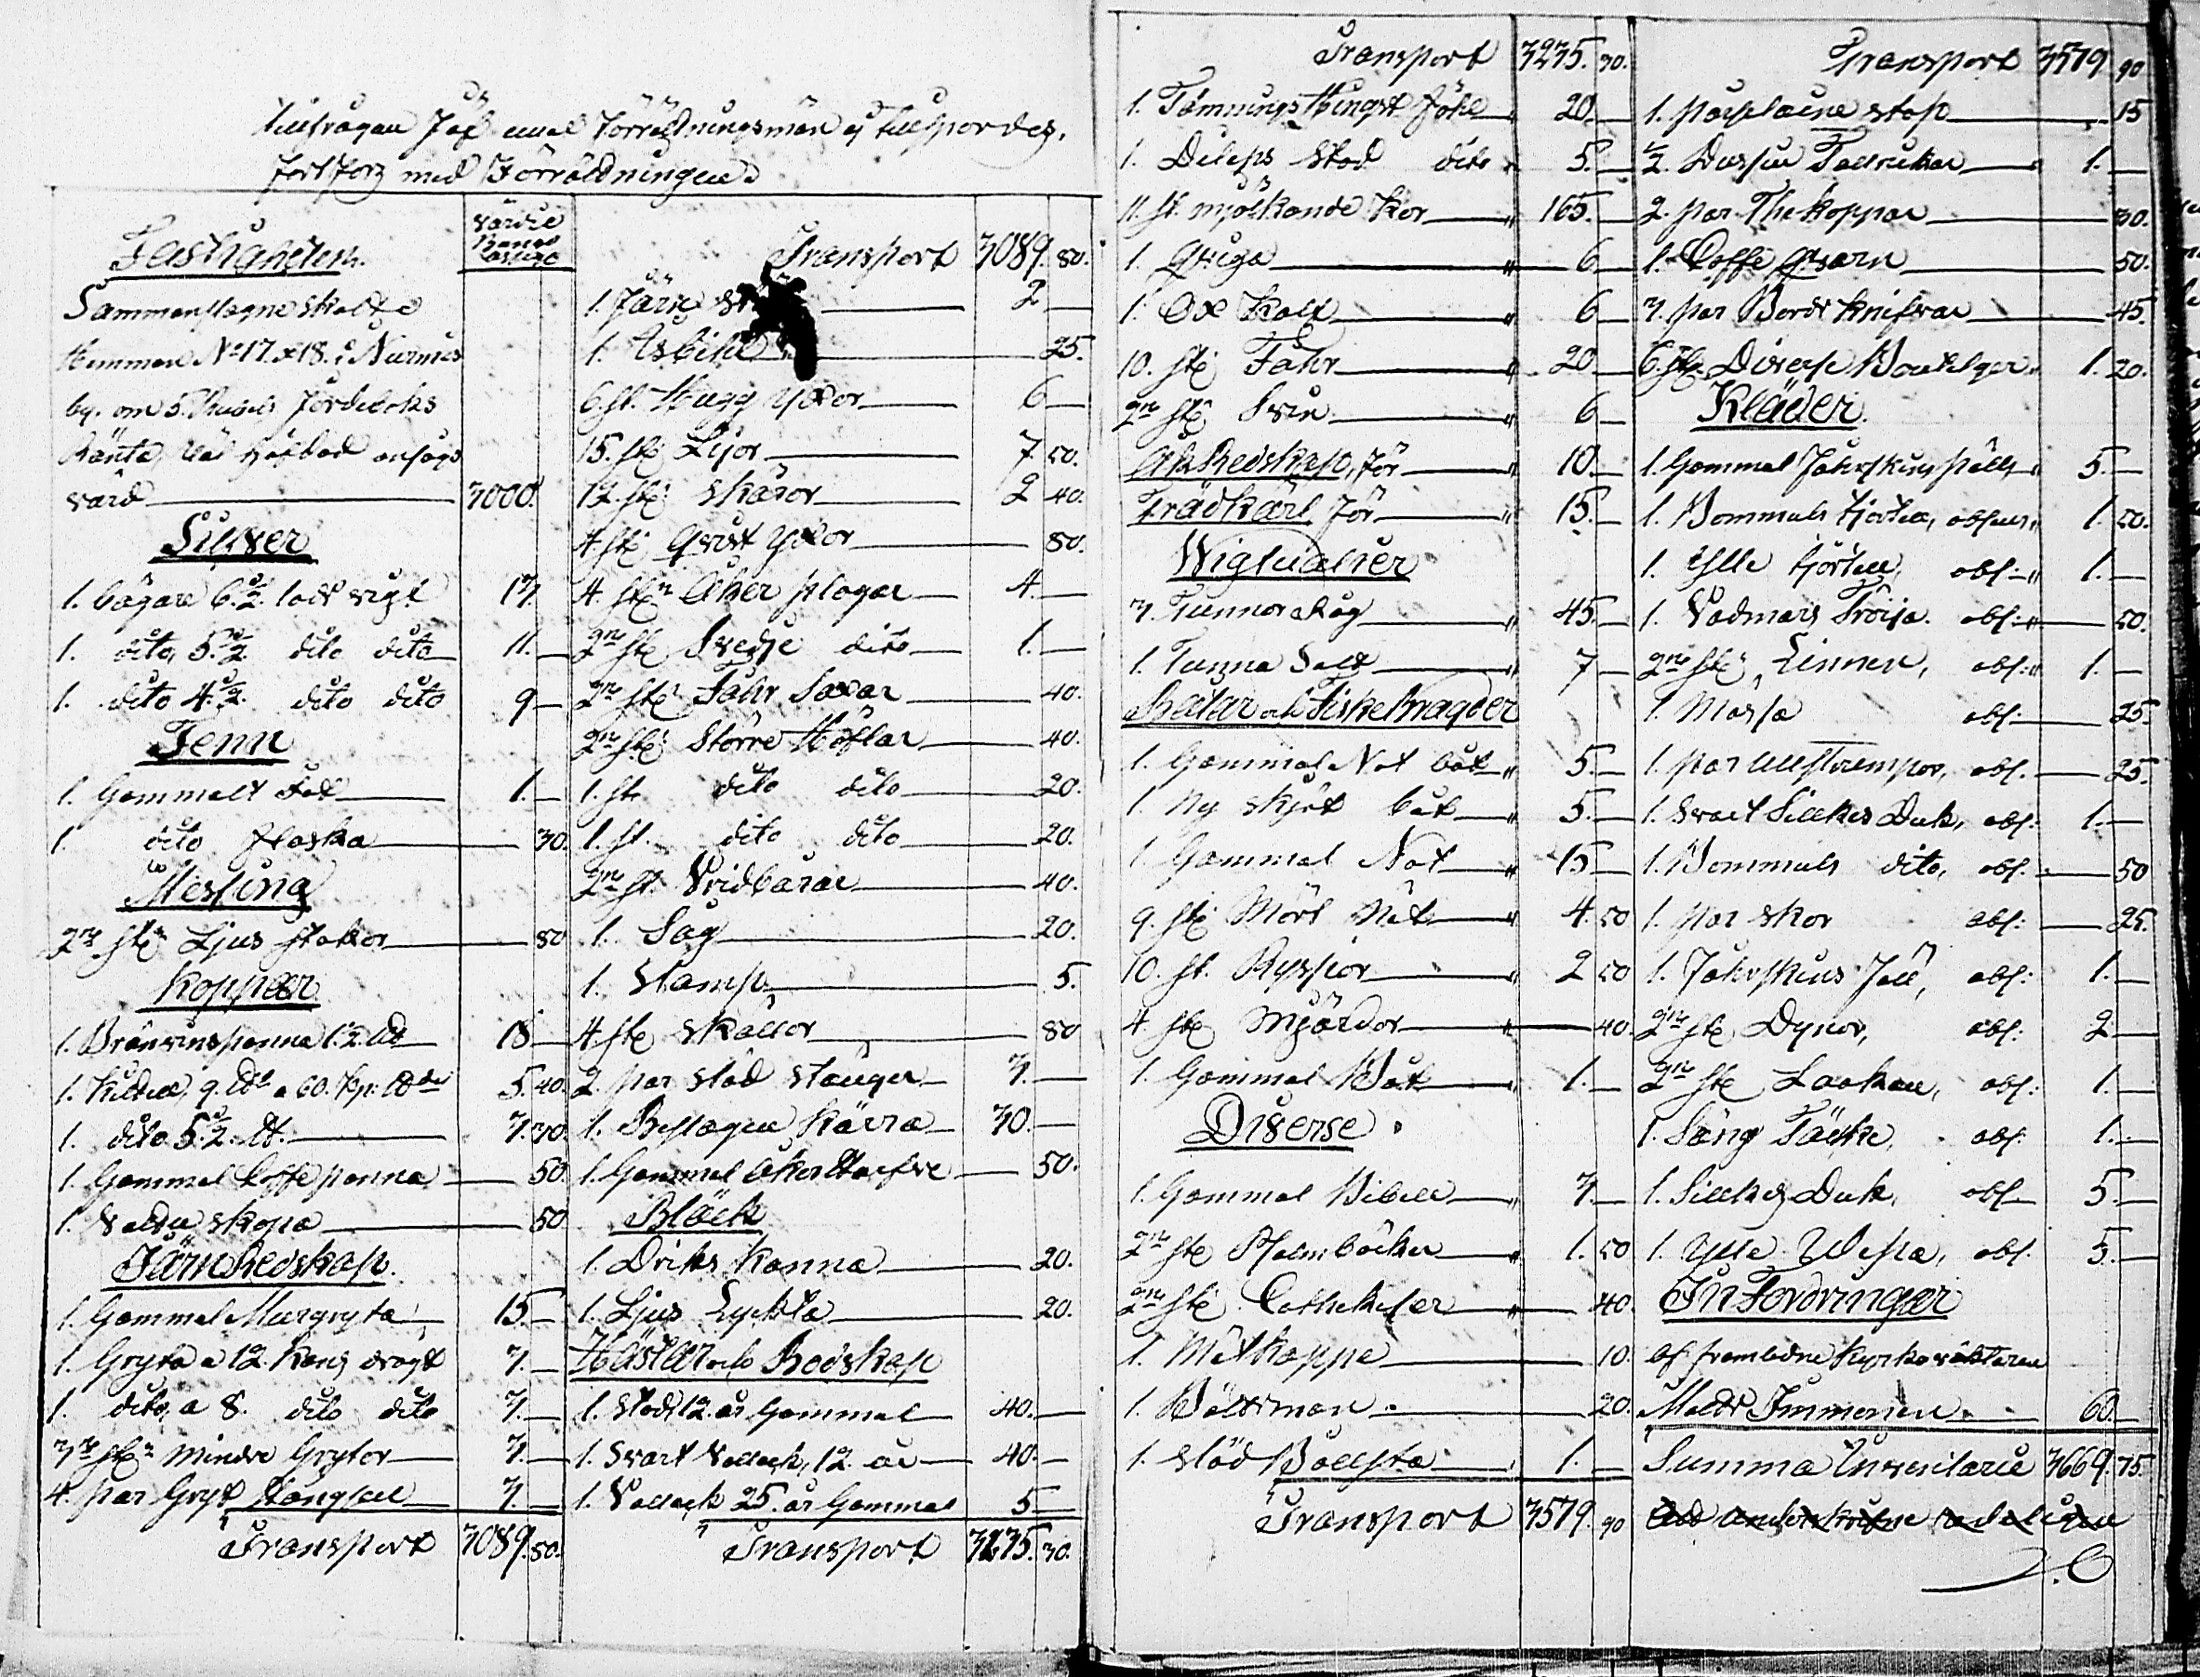 tillfrågan Jäf emot Förrättningsmän ej tillspordes,
fortfors med Förrättningen.
Fastigheten.
värde Banco
Sammanslagne skatte
Hemman No 17. & 18. i Nurmis
by. om Jordeboks
Ränta, ansågs
värd 3000.
Silfver
1. bägare 6.½. lod vigt 13.
1. dito, 5.½. dito dito 11.
1. dito 4.½. dito dito 9
Tenn
1. Gammalt Fat 1.
1 dito flaska 30.
Messing
2ne ste Ljus stakor 80
Koppar
1. Brännvinspanna 18
1. Kittel, 9. a 60. kp: 5.40.
1. dito 5.½. 3.30.
1. Gammal Coffe panna 50.
1. skopa 50
Järn Redskap.
1. Gammal Murgryta 15
1. Gryta a 12. kans dragt 3.
1. dito, a 8. dito dito 3.
3ne ste mindre Grytor 3.
4. par Gryt 3.
Transport 3089.80.
Transport 3089.80.
1. Järn 2
1. Isbill 25.
6. st. Hugg Yxor 6
15. ste Lijor 7.50.
12. ste skäror 2 40.
4. ste Qvist Yxor 80.
4. ste Åker plogar 4.
2ne ste Svedje dito 1.
2ne ste Fåhr Saxar 40.
2ne ste Större Höflar 40.
1. st. dito dito 20.
1. st. dito dito 20.
2ne st. Vridbårar 40.
1. Såg 20.
1. Stamp 5.
4. ste skällor 80
2. par släd stänger 3.
1. Beslagen Kärra 30.
1. Gammal Åker Harfve 50.
Bläck
1. Driks kanna 20.
1. Ljus Lyckta 20.
Hästar och Redskap
1. Stod, 12. år Gammal 40.
1. Svart Vallack, 12. år 40.
1. Vallack 25. år Gammal 5
Transport 3235.30.
Transport 3235.30.
1. Tämnings Hingst Föhl 20
1. Stod dito 5.
11. st. mjölkande Kor 165.
1. Qviga 6
1. Ox Kalf 6
10. ste Fåhr 20
2ne ste Svin 6
Åk Redskap, för 10.
Trädkärl för 15.
Victualier
3. Tunnor Råg 45.
1. Tunna Salt 7
Båtar och Fiske Bragder
1. Gammal Not båt 5.
1. Ny skjöt båt 5.
1. Gammal Not 15
9. ste Mört Nät 4.50
10. st. Ryssior 2 50
4. ste Mjärdor 40.
1. Gammal Båt 1.
Diverse
1. Gammal Bibel 3.
2ne ste Psalmböcker 1.50
2ne ste Cathekeser 40.
1. Mätkappe 10.
1. Båltsman 20.
1. släd 1.
Transport 3579.90
Transport 3579 90
1. stop 15
½. Dussin Tallrickar 1.
2. par The Koppar 30.
1. Coffe Qvarn 50.
3. par Bords Knifvar 45.
6. ste Diverse Bouteljer 1.20.
Kläder.
1. Gammal Fåhrskins Päls 5.
1. Bommuls Kjortel, obs. 1.50.
1. Ylle Kjortel, obs: 1.
1. Vadmars Tröija. obs: 50.
2ne ste Linnen, obs: 1.
1. Mössa obs: 25.
1. par Ullstrumpor, obs. 25.
1. Svart Silkes Duk, obs: 1.
1. Bommuls dito, obs. 50
1. par skor obs: 25.
1. Fåhrskins Fäll, obs: 1.
2ne ste Dynor, obs: 2
2ne ste Laakan, obs: 1.
1. Säng Täcke, obs: 1.
1. Silkes Duk, obs. 5.
1. Ylle Westa, obs. 5.
In Fordringar
Af framledne Kyrkovächtaren
Matts Immonen 60.
Summa Inventarie 3669.75.